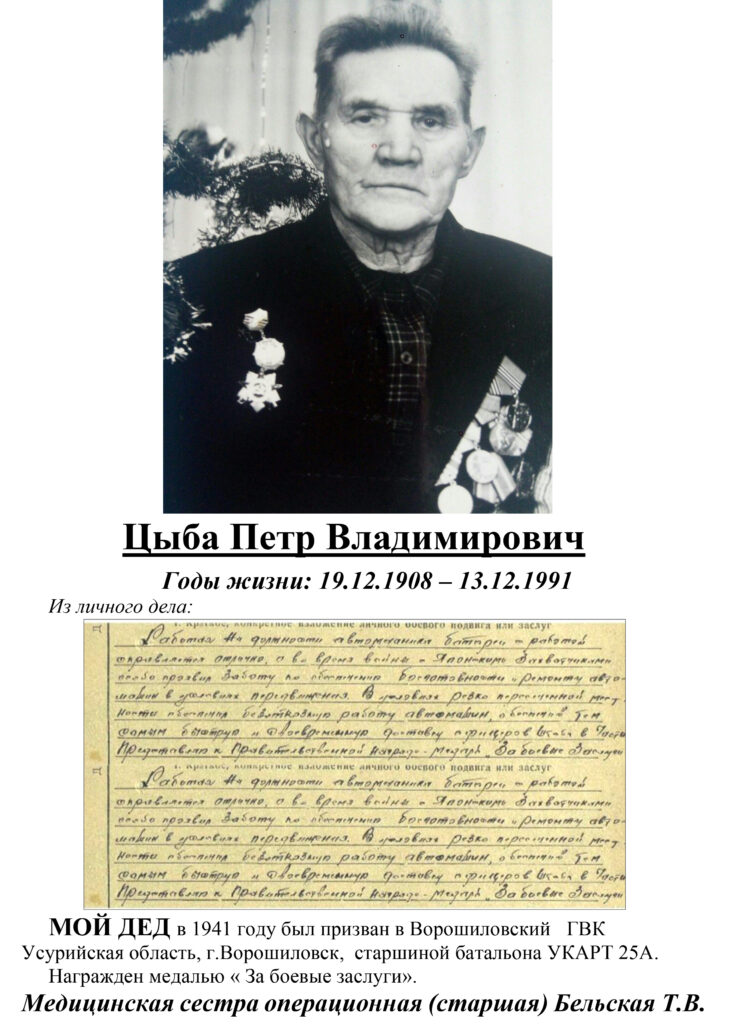 Цыба Петр Владимирович
Годы жизни: 19.12.1908 – 13.12.1991
Из личного дела:
1. Краткое, конкретное изложение личного боевого подвига или заслуг
Работая на должности автомеханика батареи с работой
справляется отлично, а во время войны с Японскими Захватчиками
особо проявил Заботу по обеспечению Боеготовности и Ремонту авто-
машин в условиях передвижения. В условиях резко пересеченной мест
ности обеспечил безотказную работу автомашин, обеспечив тем
самым быструю и своевременную доставку офицеров Штаба в Части
Представляю к Правительственной награде - медаль „За боевые Заслуги
1. Краткое, конкретное изложение личного боевого подвига или заслуг
Работая на должности автомеханика батареи с работой
справляется отлично, а во время войны с Японскими Захватчиками
особо проявил Заботу по обеспечению Боеготовности и Ремонту авто-
машин в условиях передвижения. В условиях резко пересеченной мест
ности обеспечил безотказную работу автомашин, обеспечив тем
самым быструю и своевременную доставку офицеров Штаба в Части
Представляю к Правительственной награде - медаль „За боевые Заслуги
МОЙ ДЕД в 1941 году был призван в Ворошиловский ГВК
Усурийская область, г.Ворошиловск, старшиной батальона УКАРТ 25А.
Награжден медалью « За боевые заслуги».
Медицинская сестра операционная (старшая) Бельская Т.В.